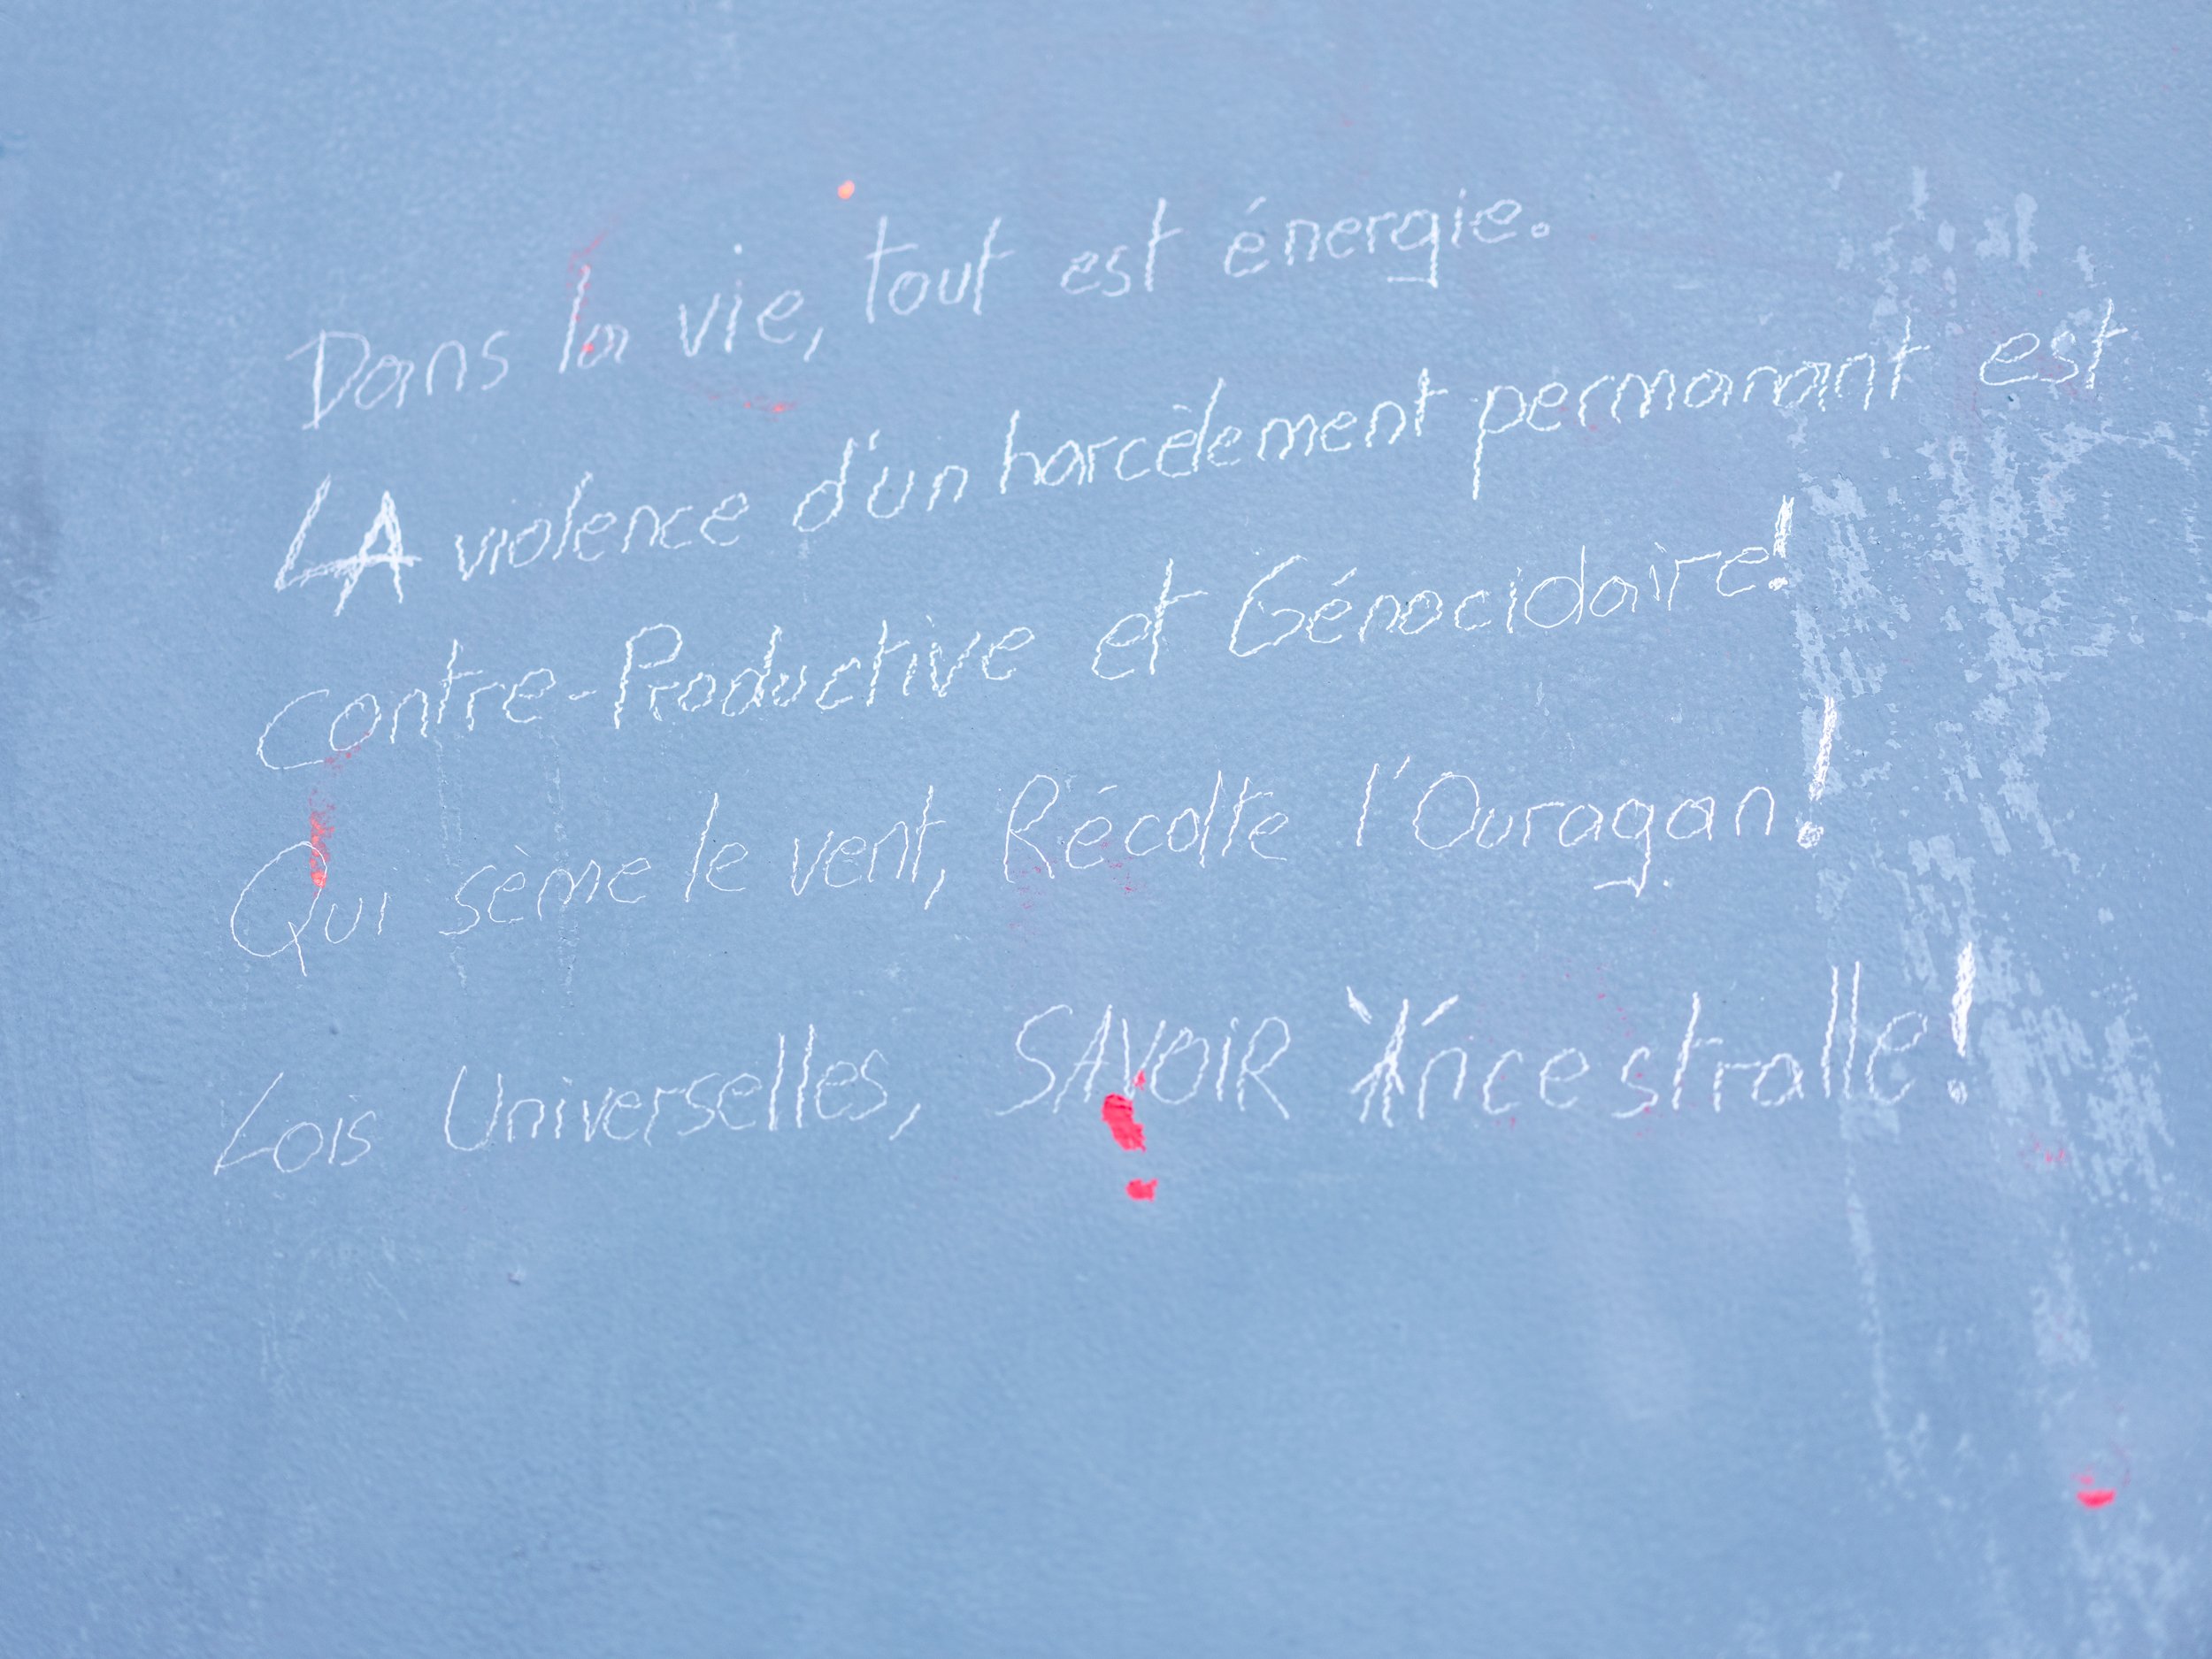 Dans la vie, tout est énergie.
LA violence d'un harcèlement permanant est
contre-Productive et Génocidaire!
Qui sème le vent, Récolte l'Ouragan!
Lois Universelles, SAVOIR Ancestralle!